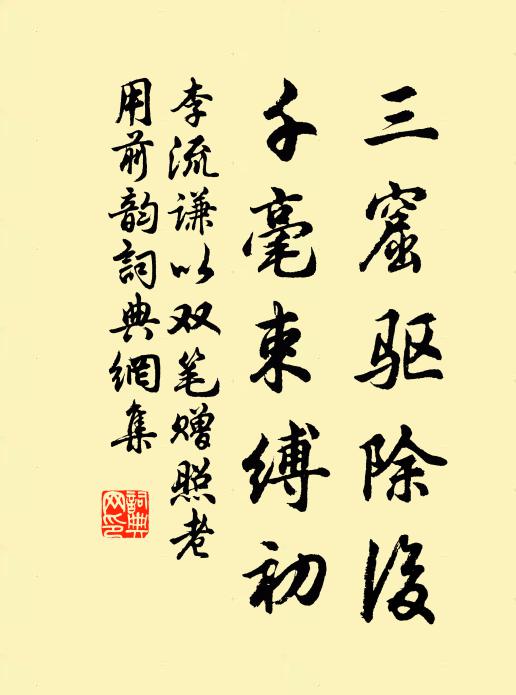 三窟驱除後
千毫束缚初
李流谦以双笔赠照老
用前韵词典網集
詞典网印